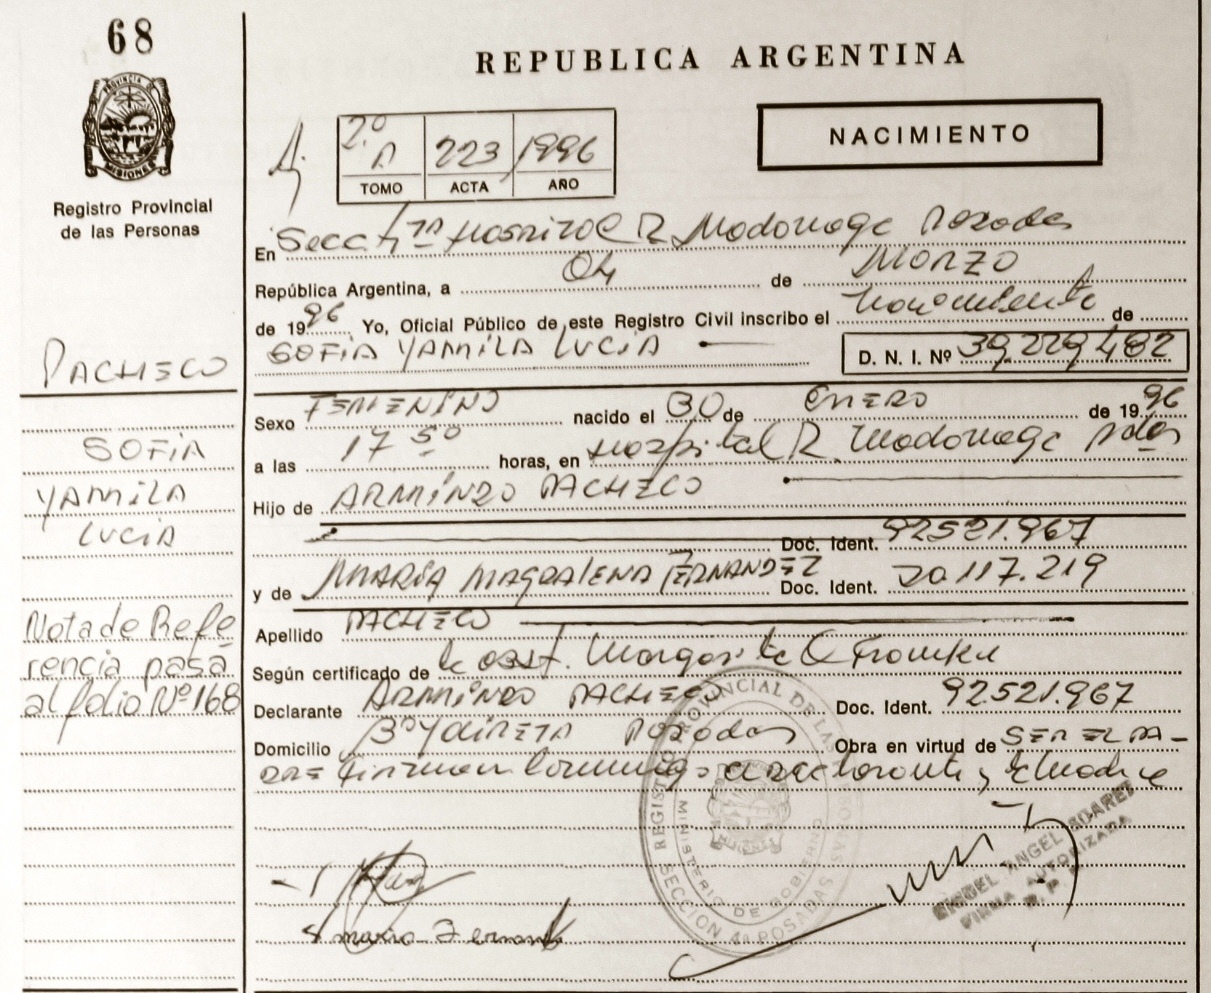 68
REPUBLICA ARGENTINA
PROVINCIA D
MISIONES
NACIMIENTO
2º A 223 1996
TOMO ACTA AÑO
Registro Provincial
de las Personas
En Secc 4ta Hospital R Madariaga Posadas
República Argentina, a 04 de Marzo
de 1996 Yo, Oficial Público de este Registro Civil inscribo el nacimiento de
SOFIA YAMILA LUCIA D. N. I. Nº 39.229.482
PACHECO
Sexo FEMENINO nacido el 30 de ENERO de 1996
a las 17 50 horas, en Hospital R. Madariaga Pdas
Hijo de ARMINDO PACHECO
Doc. Ident. 92521.967
y de MARIA MAGDALENA FERNANDEZ Doc. Ident. 20117.219
SOFIA
YAMILA
LUCIA
Nota de Refe
rencia pasa
al folio Nº 168
Apellido PACHECO
Según certificado de la obst. Margarita
Declarante ARMINDO PACHECO Doc. Ident. 92521.967
Domicilio Bº Posadas Obra en virtud de SER EL PA-
DRE firman conmigo el declarante y la madre
REGISTRO PROVINCIAL DE LAS
MINISTERIO DE GOBIERNO
SECCION 4ª POSADAS
Maria Fernand
ANGEL SUAREZ
FIRMA AUTORIZADA
R. P.